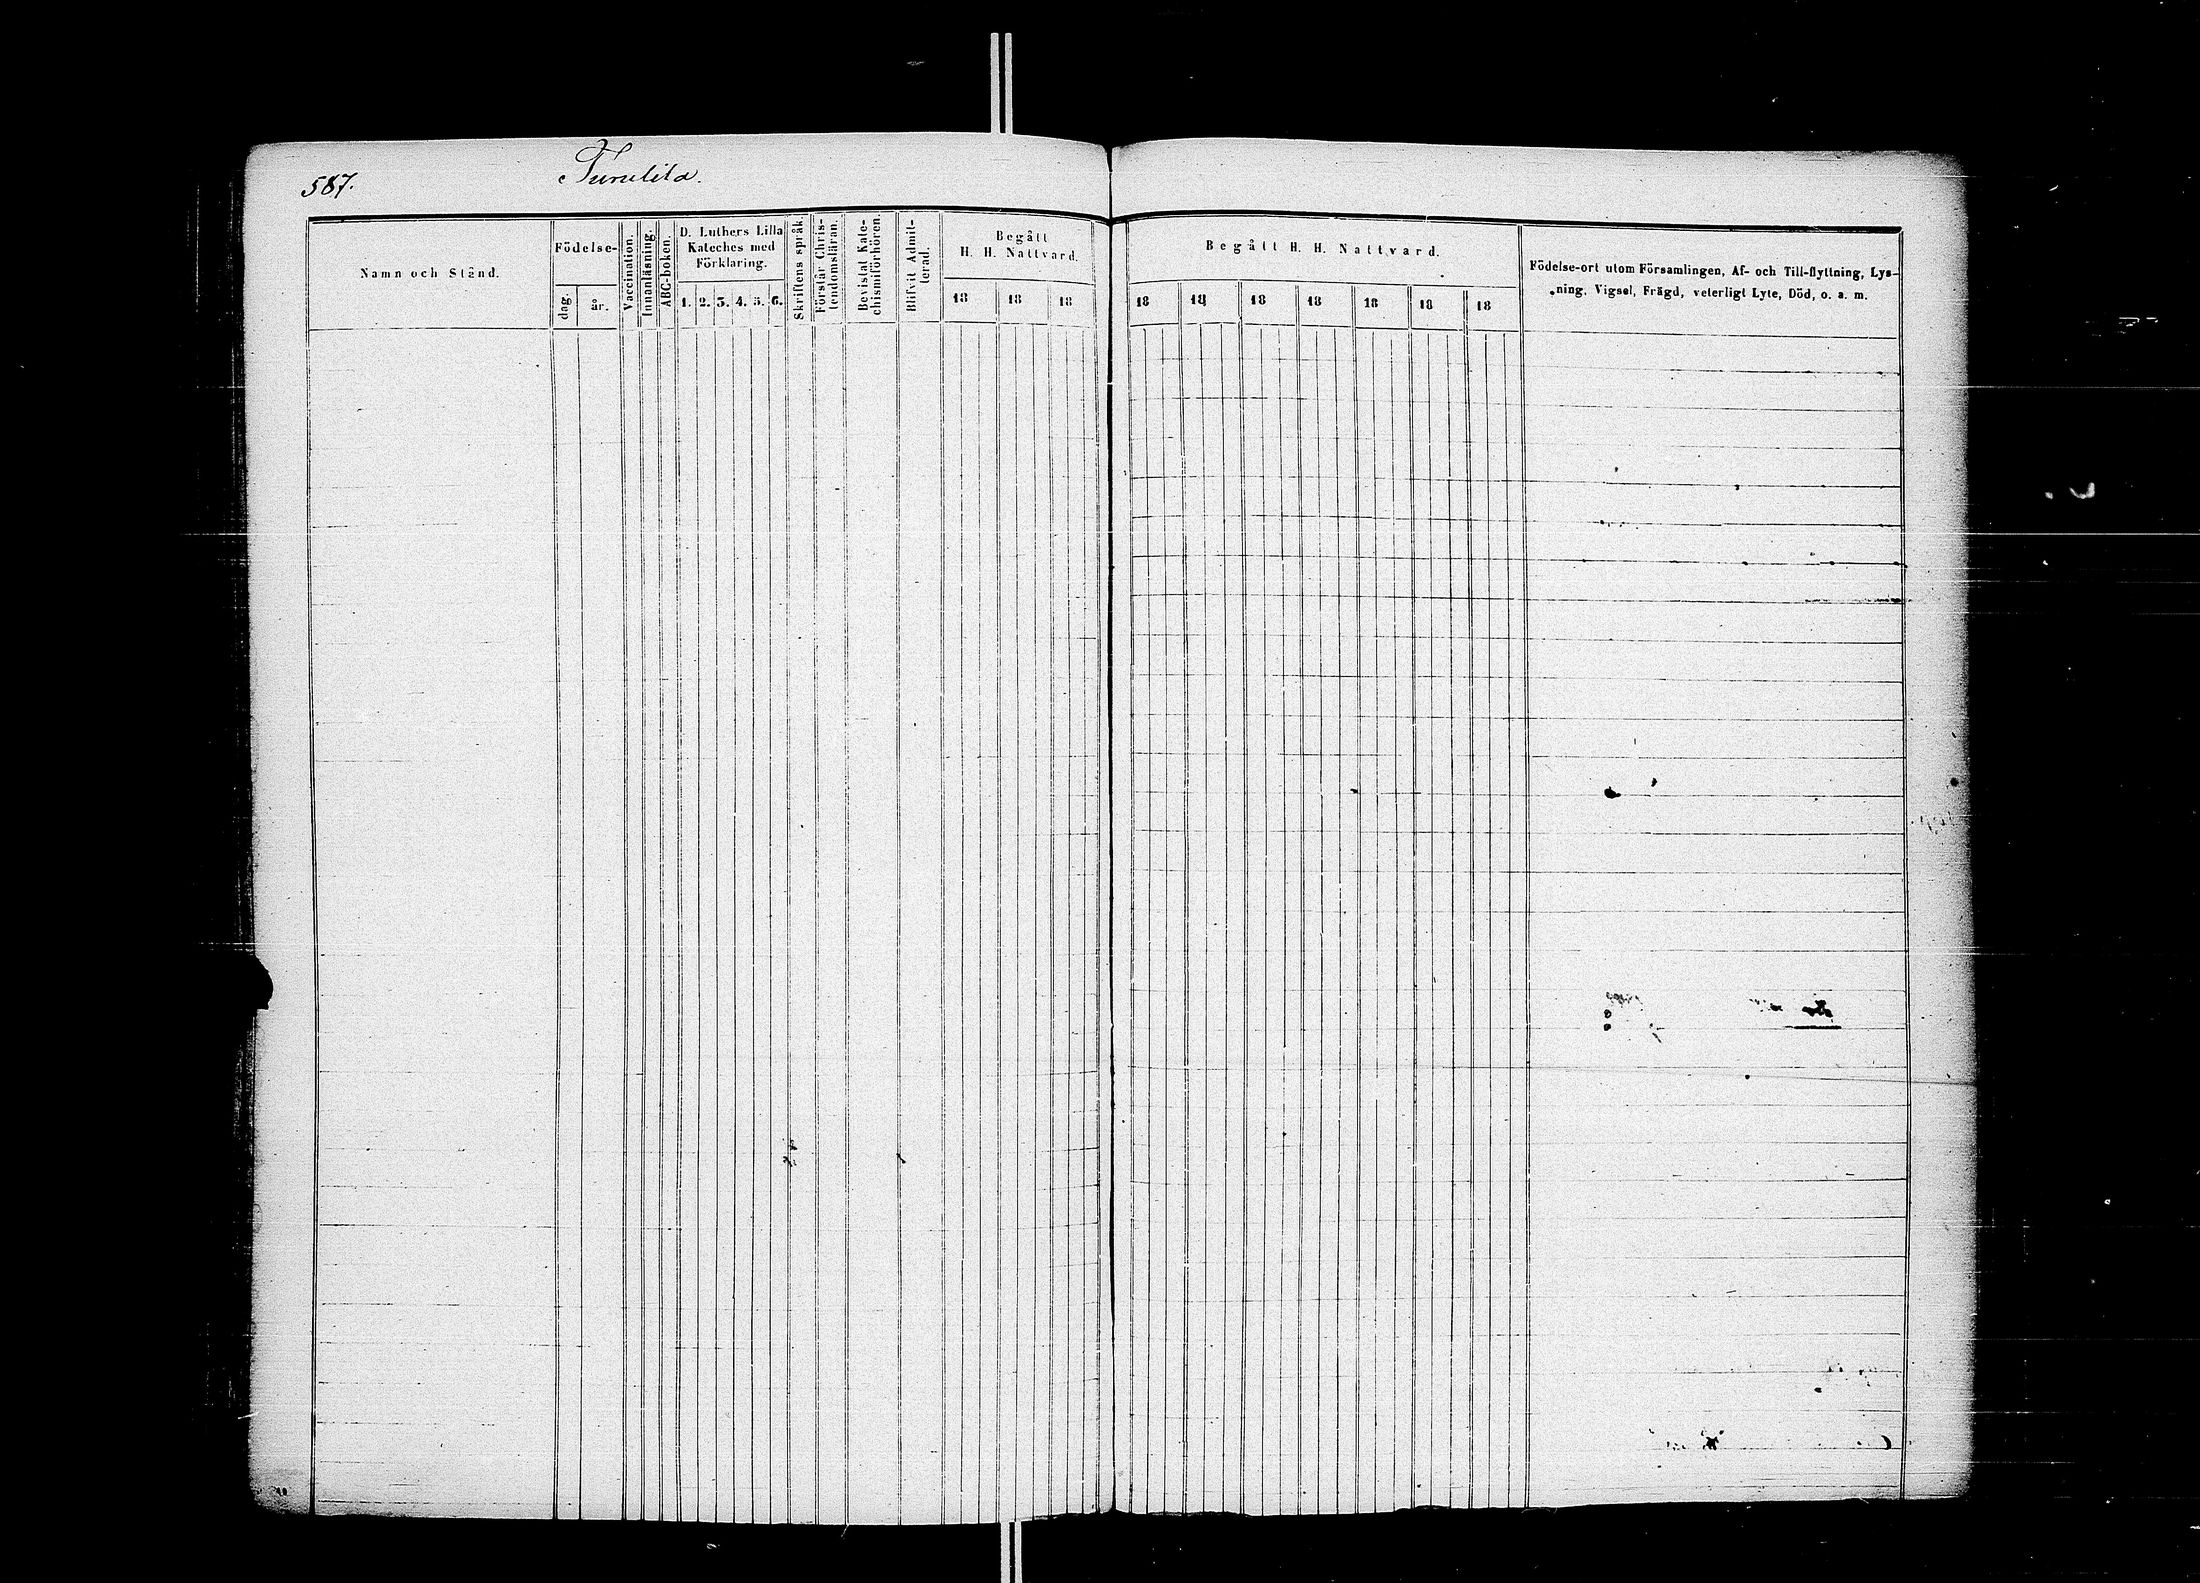 587.
Turulila.
Namn och Stånd.
Födelse-
dag.
år.
Vaccination.
Innanläsning.
ABC-boken.
D. Luthers Lilla
Kateches med
Förklaring.
1. 2. 3. 4. 5. 6.
Skriftens språk.
Förstår Chris-
tendomsläran.
Bevistat Kate-
chismiförhören.
Blifvit Admit-
terad.
Begått
H. H. Nattvard.
18 18 18
Begått H. H. Nattvard.
18 18 18 18 18 18 18
Födelse-ort utom Församlingen, Af- och Till-flyttning, Lys-
ning, Vigsel, Frägd, veterligt Lyte, Död, o. a. m.